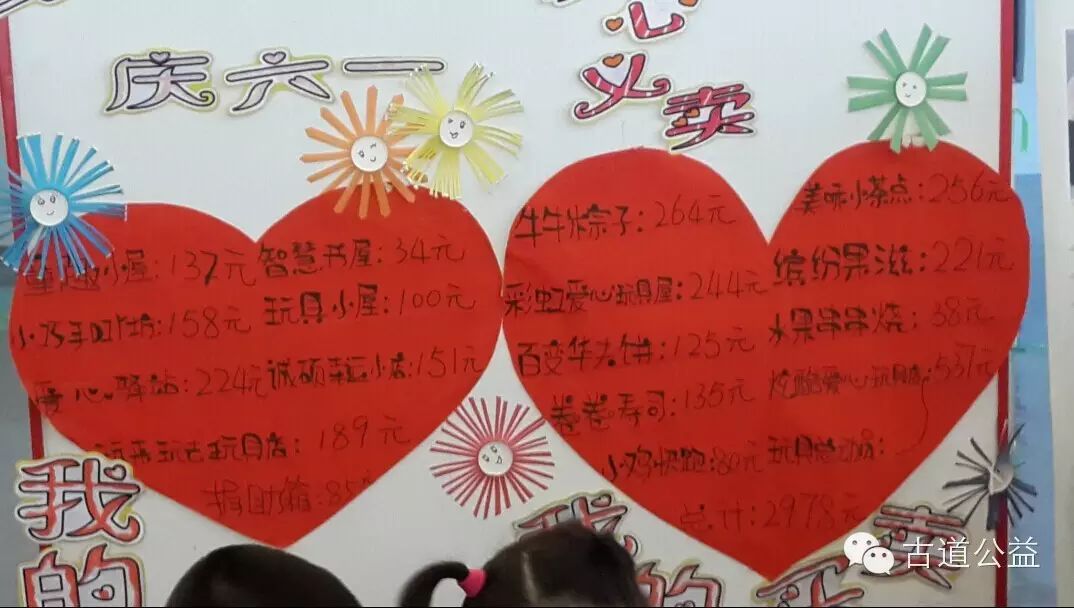 庆六一
心
义卖
小屋：137元
智慧书屋：34元
小巧手：158元
玩具小屋：100元
爱心驿站：224元
小店：151元
玩具店：189元
捐助箱：85
牛牛粽子：264元
美味小茶点：256元
彩虹爱心玩具屋：244元
缤纷果滋：221元
百变华夫饼：125元
水果串串烧：38元
卷卷寿司：135元
炫酷爱心玩具店：537元
小鸡快跑：80元
玩具总动员：
总计：2978元
我的
我的
买卖
古道公益